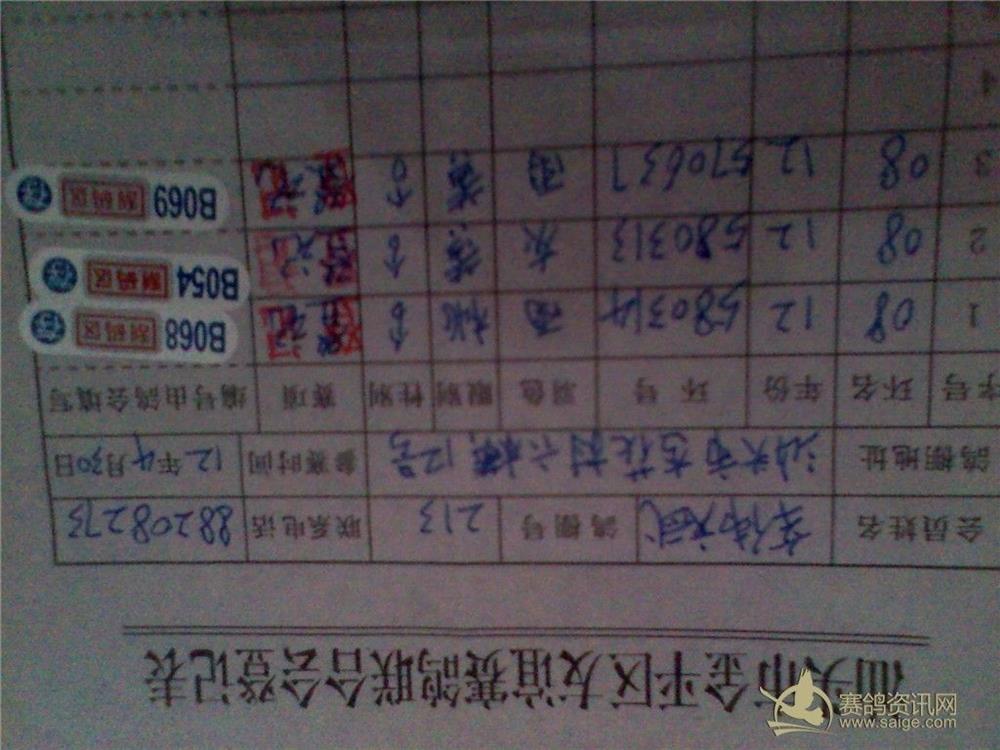 汕头市金平区友谊赛鸽联合会登记表
会员姓名 鸽棚号 213 联系电话 88208273
鸽棚地址 汕头市杏花村六横12号 参赛时间 12年4月30日
序号 环名 年份 环号 羽色 眼别 性别 赛项 编号由鸽会填写
1 08 12 580314 雨 桃 6 B068 刮码区
2 08 12 580313 灰 黄 6 B054 刮码区
3 08 12 570637 雨 黄 6 B069 刮码区
4
赛鸽资讯网
www.saige.com